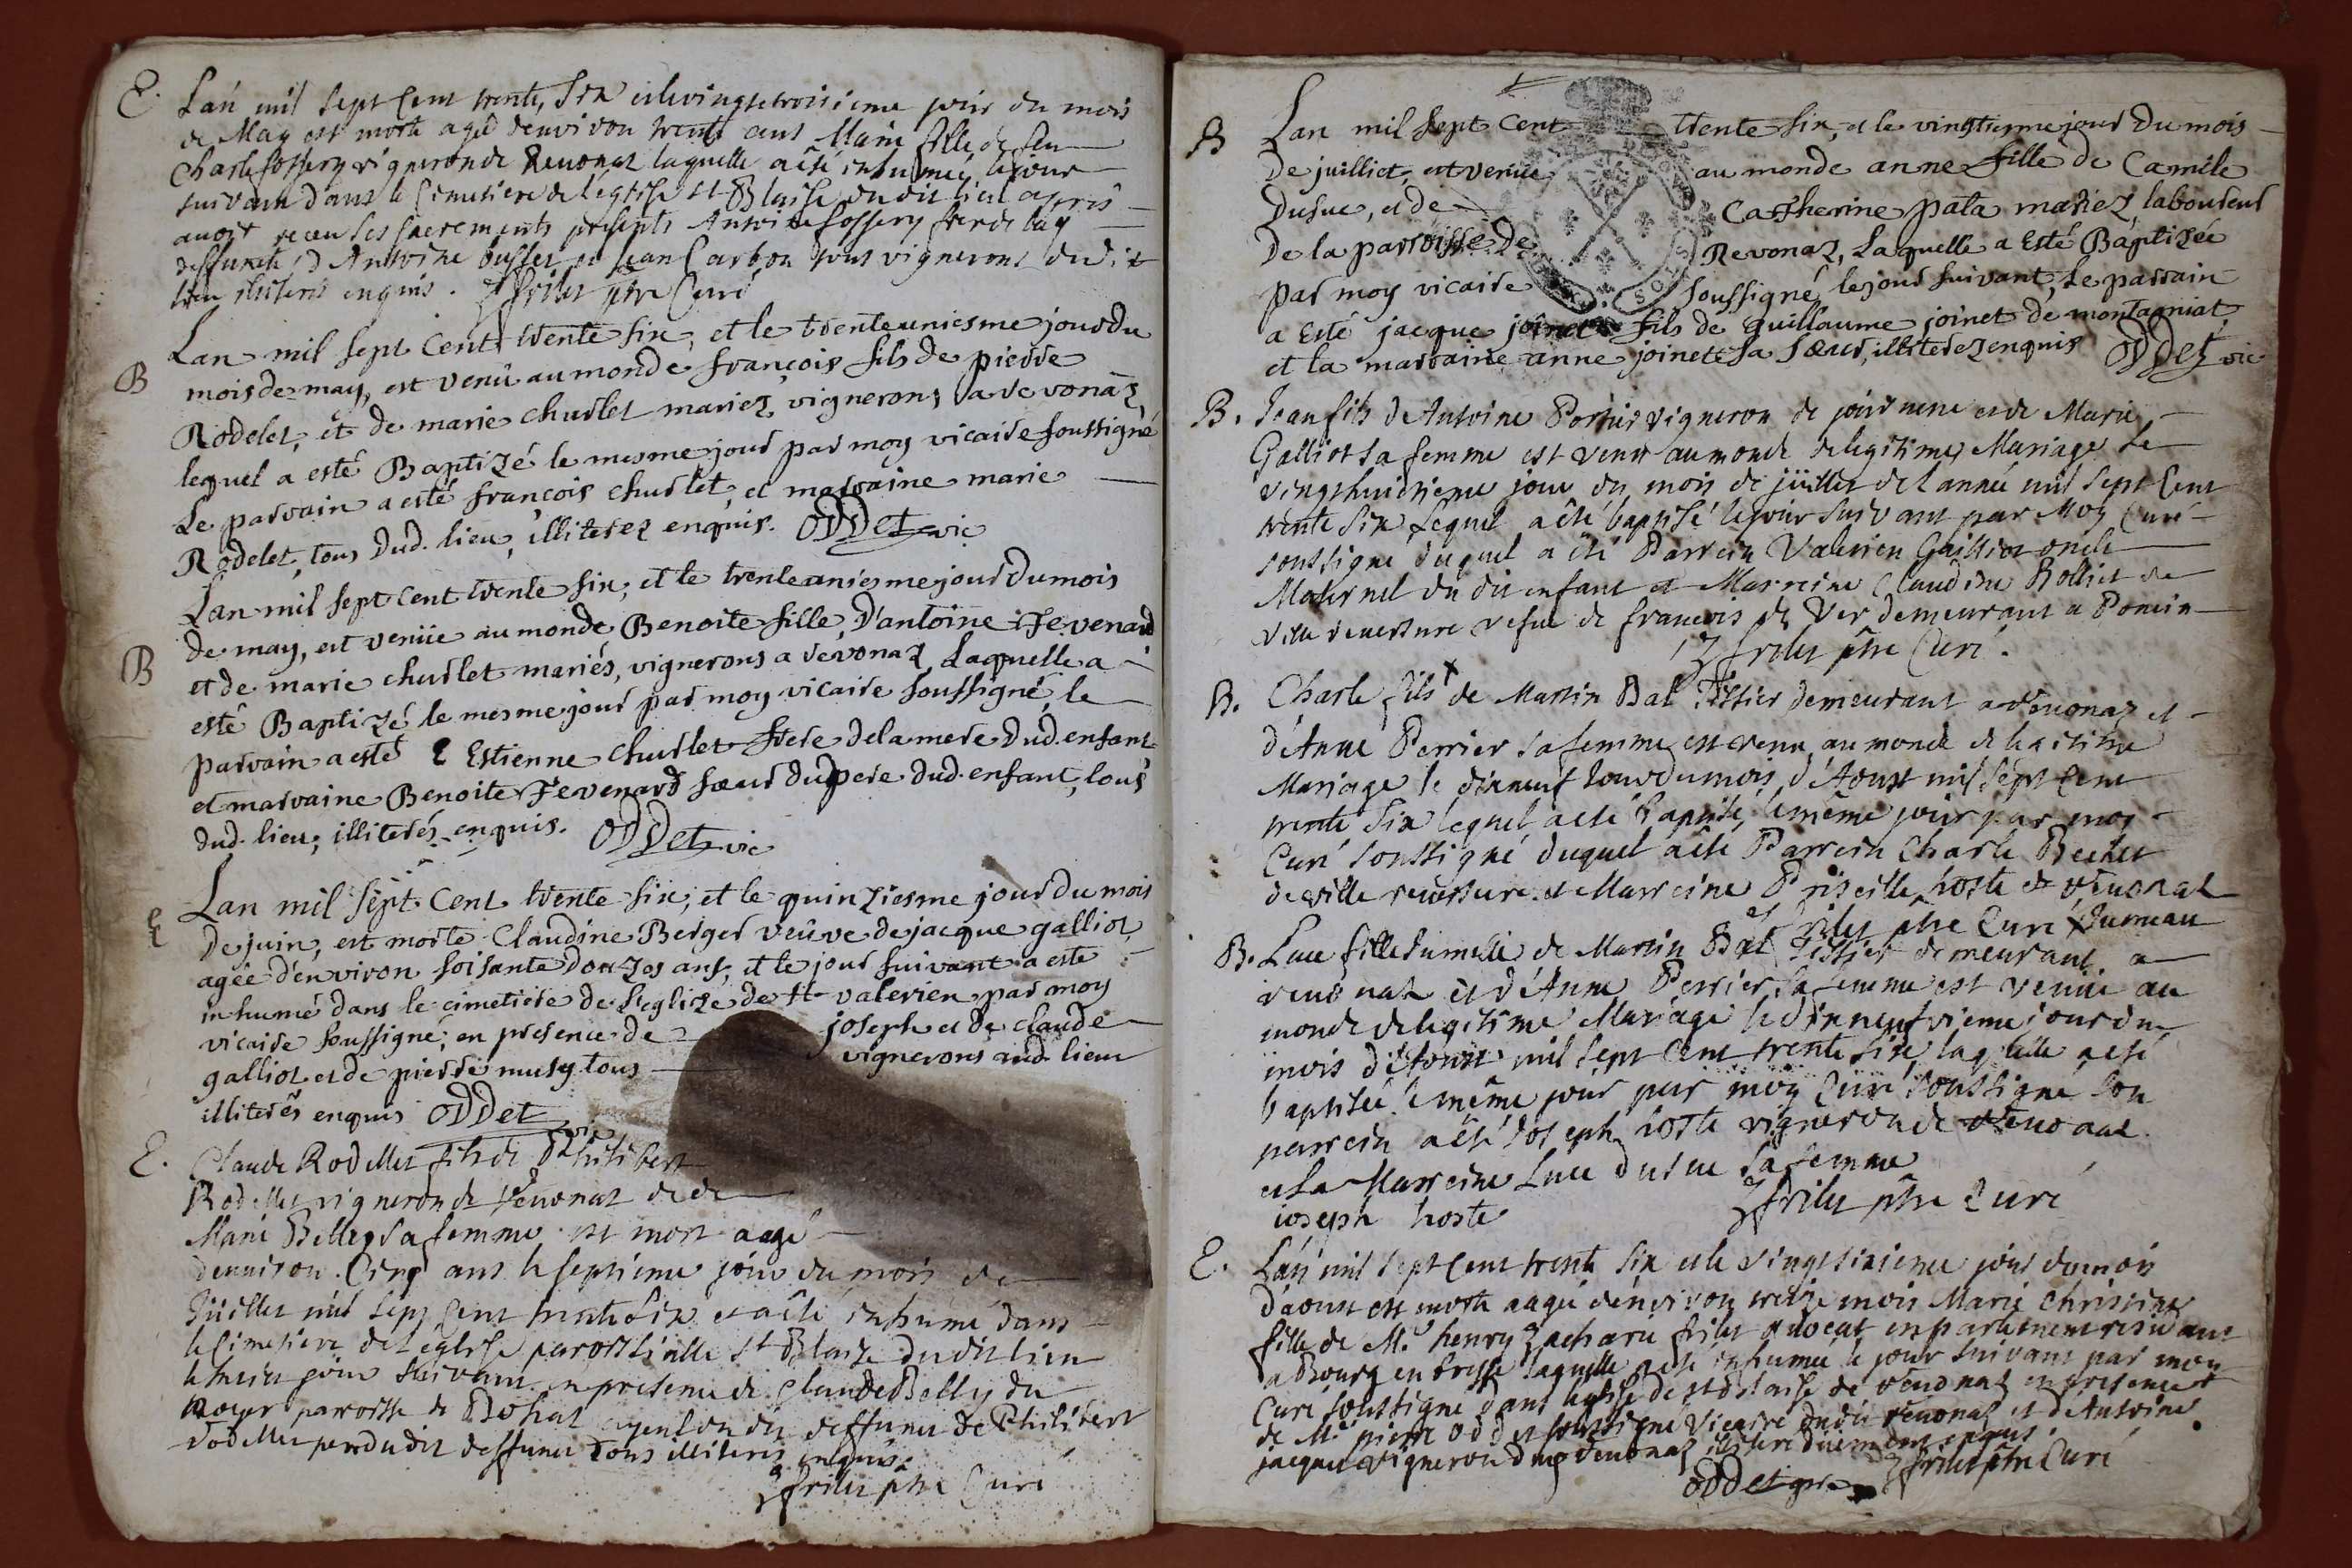 E. Lan mil sept Cent trente, Six et le vingt troisieme jour du mois
de May est morte agée denviron trente ans Marie fille de feu
Charle fossery vigneron de Revonaz laquelle a été inhumée le jour
suivant dans le Cimetiere de leglise St Blaise du dit lieu après
avoir receu les sacrements presents Antoine fossery frere de la
deffunte, d'Antoine busset et Jean Carbon tous vignerons du dit
lieu illiterés enquis. frilet ptre Curé
B Lan mil sept Cent trente six, et le trente uniesme jour du
mois de may, est venu au monde françois fils de pierre
Rodelet, et de marie churlet mariez, vignerons a revonaz,
lequel a esté Baptizé le mesme jour par moy vicaire soussigné
Le parvain a esté françois churlet, et marvaine marie
Rodelet, tous dud. lieu, illiterez enquis. ODDet vic
B Lan mil sept cent trente six, et le trente uniesme jour du mois
de may, est venüe au monde Benoite fille, D'antoine Fevenard
et de marie churlet mariés, vignerons a revonaz, Laquelle a
esté Baptizé le mesme jour par moy vicaire soussigné, le
parvain a esté Estienne churlet frere de la mere dud. enfant
et marvaine Benoite Fevenard sœur du pere dud. enfant, tous
dud. lieu, illiterés enquis. ODDet vic
E Lan mil sept. Cent. trente six, et le quinziesme jour du mois
De juin, est morte Claudine Berger veûve de jacque galliot,
agée d'environ soisante douzes ans, et le jour suivant a esté
inhumé dans le cimetiere de L'eglize de St valerien par moy
vicaire soussigné, en presence de joseph et de claude
galliot et de pierre musy tous vignerons aud. lieu
illiterés enquis ODDet vic
E. Claude Rodellet fils de Philibert
Rodellet vigneron de Revonaz et de
Marie Belley sa femme est mort aagé
denviron. Cinq ans le septieme jour du mois de
Juillet mil sept Cent trente six et a été inhumé dans
le cimetiere de l'eglise paroissialle St Blaise du dit lieu
le huit jour suivant en presence de Claude Belly du
paroisse de Bohas ayeul du dit deffunct de Philibert
rodellet pere du dit deffunct tous illiterés enquis.
frilet ptre Curé
B Lan mil sept Cent trente six, et le vingtiesme jour Du mois
De juilliet, est venüe au monde anne fille de Camile
Dusuc, et de Catherine pata mariez, laboureur
De la parroisse de Revonaz, Laquelle a Esté Baptizée
par moy vicaire soussigné, le jour suivant, Le parrain
a Esté jacque joinet fils de guillaume joinet de montagniat
et la marraine anne joinete sa sœur, illiterez enquis ODDet vic
B. Jean fils de Antoine Porrier vigneron de et de Marie
Galliot sa femme est venu au monde de legitime Mariage Le
vingthuitieme jour du mois de jüillet de l'année mil sept Cent
trente six Lequel a été baptisé le jour suivant par Moy Curé
soussigné duquel a été Parrein Valerien Gailliot oncle
Maternel du dit enfant et Marreine Claudine Rolliet de
ville reversure vefue de francois de Ver demeurant a Poncin
frilet ptre Curé.
B. Charle fils de Martin Bal Tissier demeurant a Revonaz et
d'Anne Perrier sa femme est venu au monde de legitime
Mariage le dixneuf Jour du mois d'Aoust mil sept Cent
trente six lequel a été baptisé, le même jour par moy
Curé soussigné duquel a été Parrein Charle Bechet
de ville reversure. et Marreine Priscille hoste de Revonaz
frilet ptre Curé Jumeau
B. Luce fille Jumelle de Martin Bal Tissier demeurant a
revonaz et d'Anne Perrier sa femme est venüe au
monde de legitime Mariage le dixneufvieme jour du
mois d'Aoust mil sept Cent trente six, laquelle a été
baptisée le même jour par moy Curé soussigné son
parrein a été Joseph hoste vigneron de Revonaz.
et la Marreine Luce dusuc sa femme
joseph hoste frilet ptre Curé
E. Lan mil sept Cent trente six et le vingt sixieme jour du mois
d'aoust est morte aagée denviron treize mois Marie Christine
fille de Mr. henry Zacharie frilet avocat en parlement residant
a Bourg en bresse laquelle a été inhumée le jour suivant par moy
Curé soussigné dans l'eglise de St Blaise de Revonaz en presence
de Mr pierre oddet soussigné Vicaire du dit Revonaz et d'Antoine
jacquet vigneron dud Revonaz illiteré enquis.
ODDet ptre frilet ptre Curé